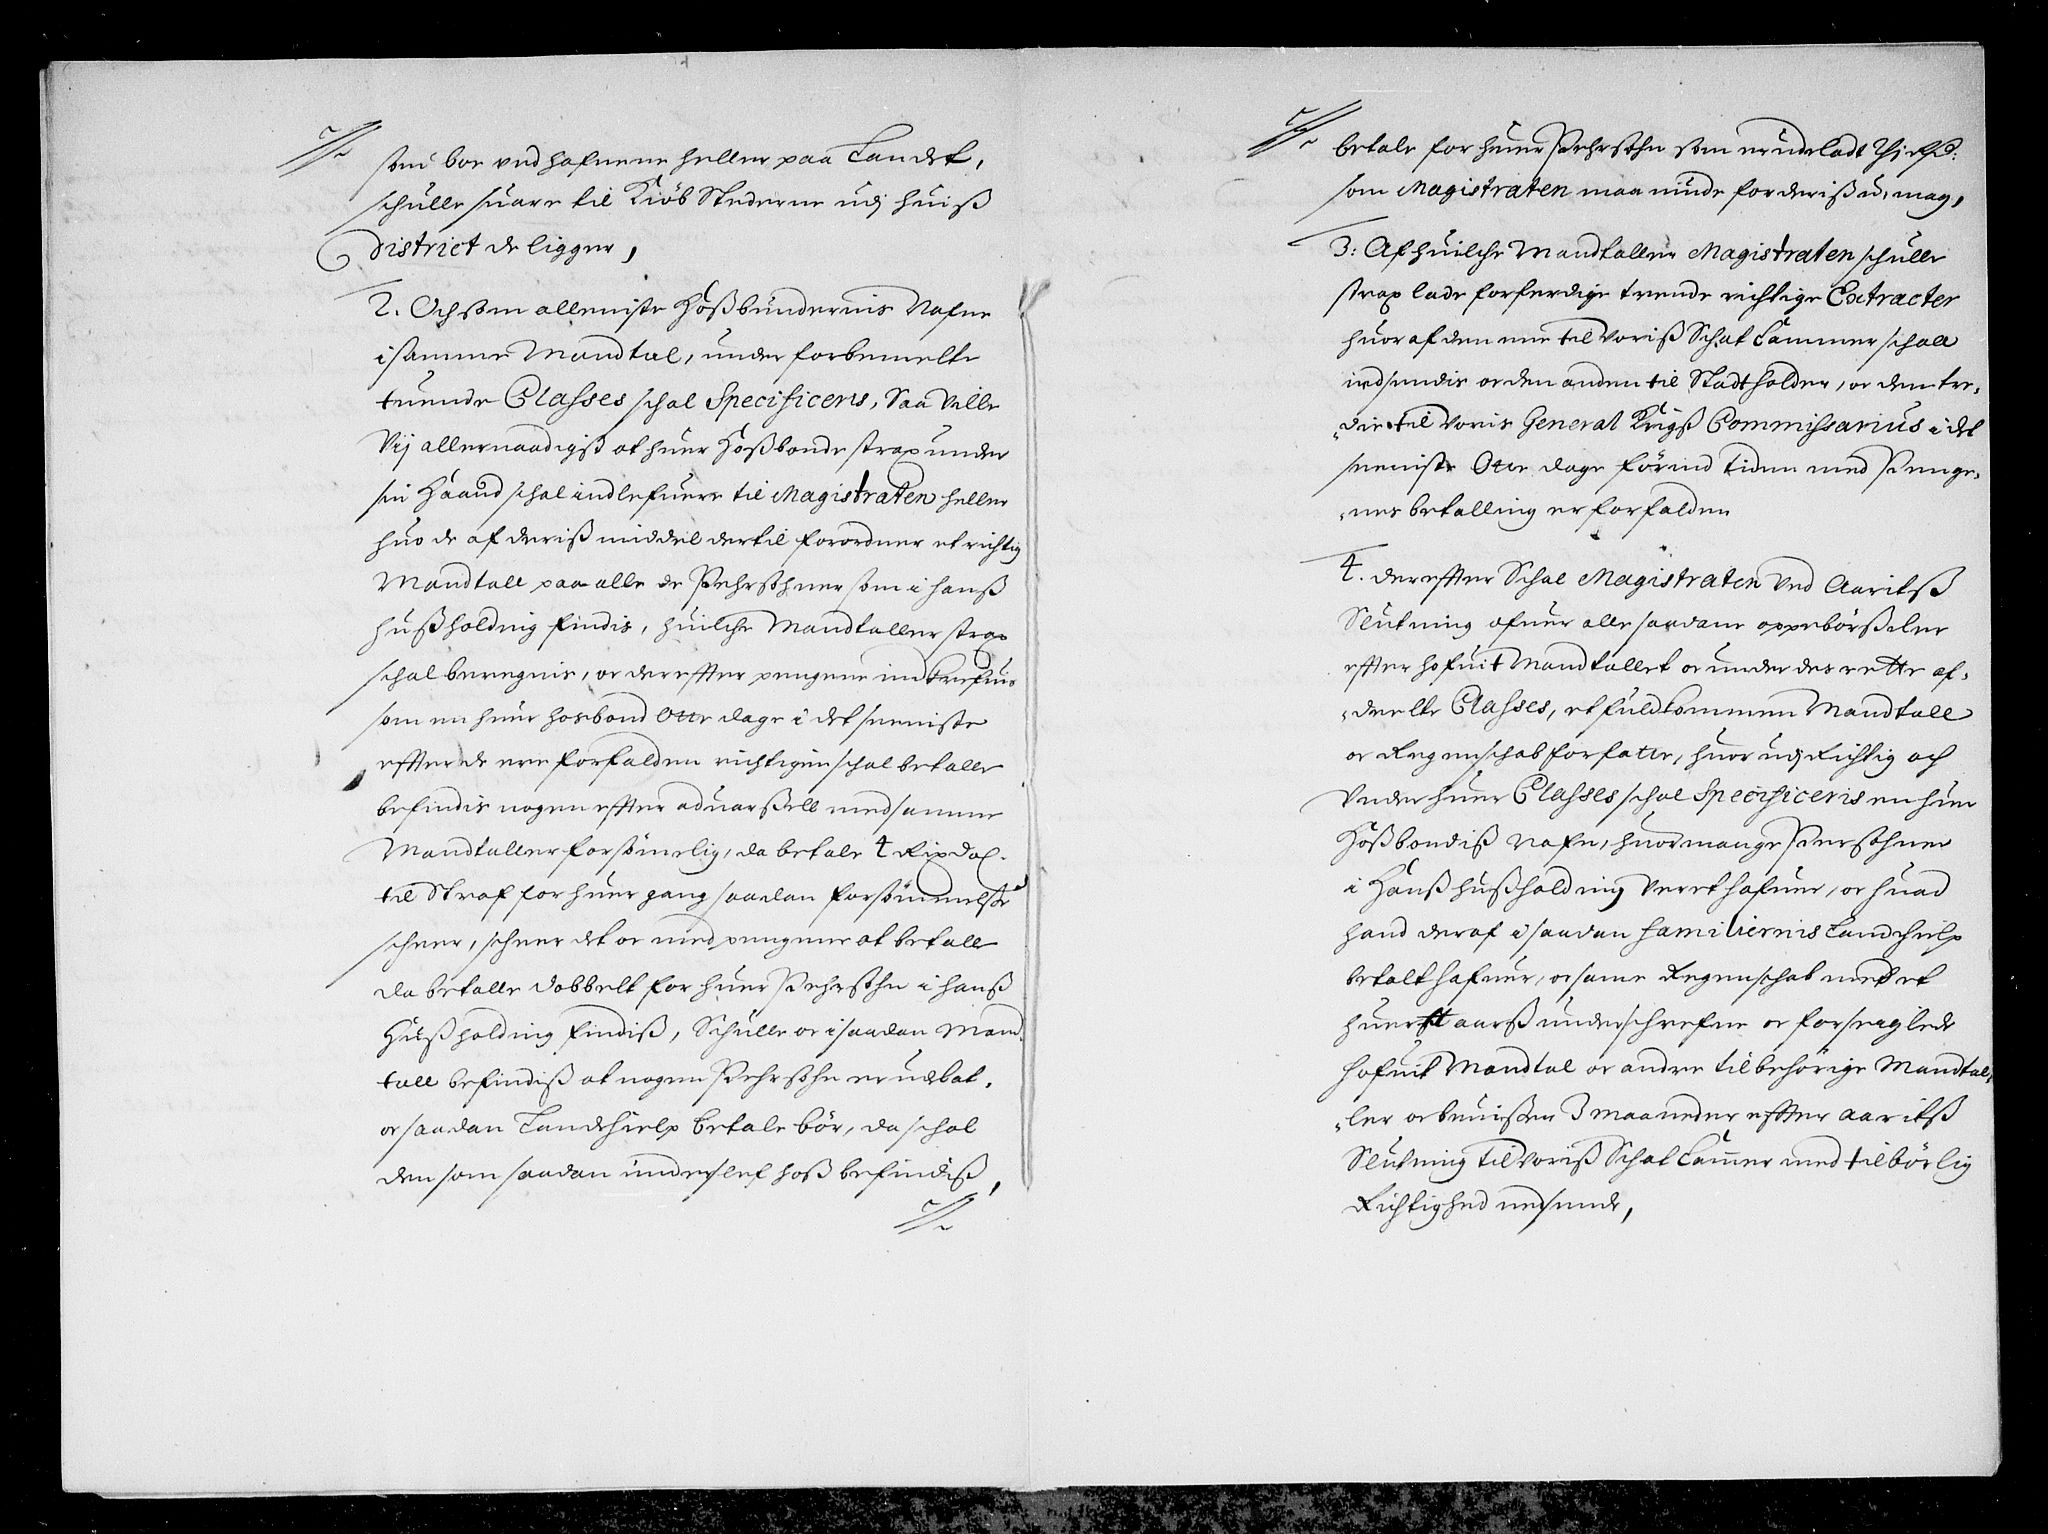 som boe ved hafnene heller paa Landet,
schulle suare til Kiöb Stederne udj huiß
district de ligger,
2. Och som alleniste Hoßbundernis Nafne
i samme Mandtal, under forbemelte
tuende Classes schal Specificeris, Saa ville
Vij allernaadigst at huer Hoßbonde strax under
sin Haand schal indlefuere til Magistraten heller
huo de af deriß middel dertil forordner et richtig
Mandtall paa alle de Pehrsohner som i hanß
hußholdnig findis, huilche Mandtaller strax
schal beregnis, oc dereffter pengene indkrefuis
som en huer hosbond Otte dage i det seeniste
effter de ere forfalden richtigen schal betalle
befindis nogen effter aduarßell med samme
Mandtaller forsömelig, da betale 4 Rixdal.
til Straf for huer gang saadan forsömmelse
scheer, scheer det oc med pengene at betalle
da betalle dobbelt for huer Pehrsohn i hanß
Hußholdnig findiß, Schulle oc i saadan Mand-
tall befindiß at nogen Pehrsohn er udelat,
oc saadan Landhielp betale bör, da schal
den som saadan underslef hoß befindiß,
betale for huer Pehrsohn som er udeladt
som Magistraten maa niude for deriß u-mag,
3: Af huilche Mandtaller Magistraten schulle
strax lade forferdige trende richtige Extracter
huor af den ene til Voriß Schat Cammer schall
indsendis oc den anden til Stadtholder, oc den tre-
die til Voris General Krigß Commissarius i det
seeniste Otte dage förind tiden med Penge-
nes betalling er forfalden
4. dereffter Schal Magistraten ved Aaritß
Slutning ofuer alle saadane oppebörßeler
effter hofuit Mandtallet oc under des rette af-
deelte Classes, et fuldkommen Mandtall
oc Regenschab forfatte, huor udj Richtig och
Under huer Classes schal Specificeris en huer
Hoßbondiß nafn, huor mange Persohner
i Hanß hußholdnig veret hafuer, oc huad
hand deraf i saadan familiernis Landhielp
betalt hafuer, oc same Regenschab med et
huert aarß underschrefne oc forseaglede
hofuit Mandtal oc andre tilbehörige Mandtal-
ler oc beuißer 3 maaneder effter aaritß
Slutning til Voriß Schat Camer med tilbörlig
Richtighed indsende,